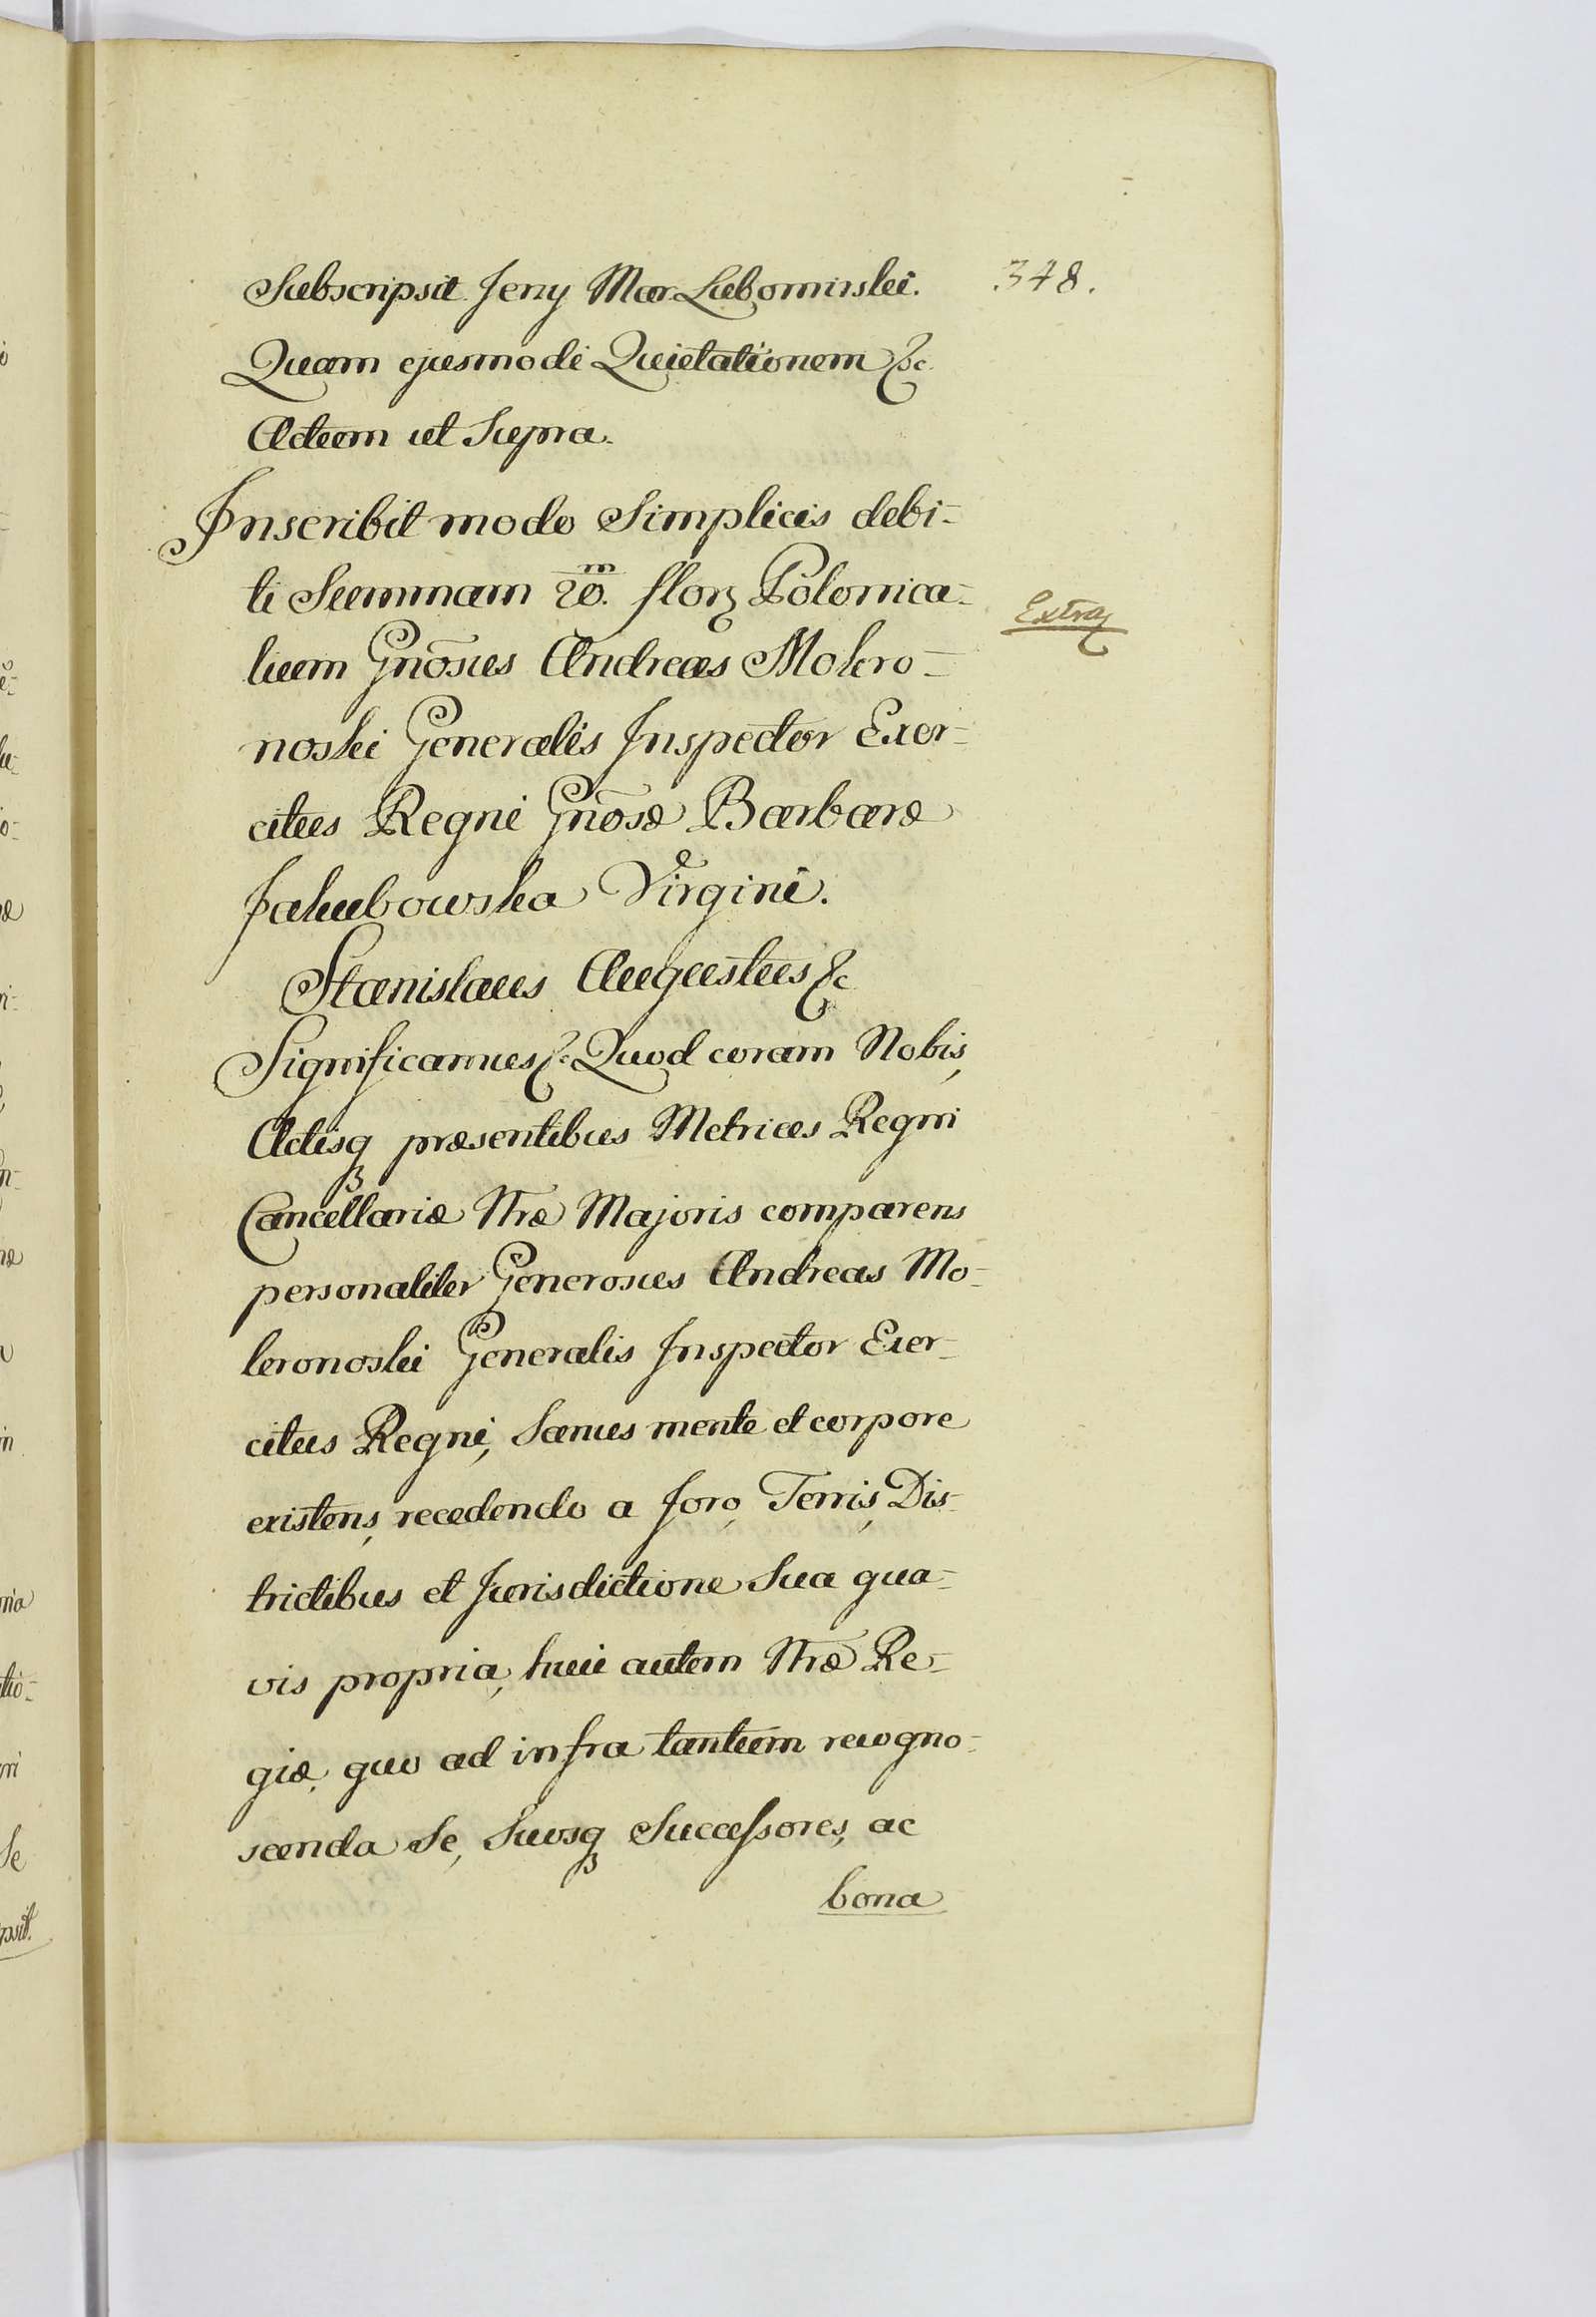 Subscripsit Jerzy Mar. Lubomirski. 348.
Quam ejusmodi Quietationem &c.
Actum ut Supra.
Inscribit modo Simplicis debi-
ti Summam 20.m flor. Polonica-
lium Gnosus Andreas Mokro-
noski Generalis Inspector Exer-
citus Regni Gnosæ Barbaræ
Jakubowska Virgini.
Extra
Stanislaus Augustus &c
Significamus &c. Quod coram Nobis,
Actisq præsentibus Metrices Regni
Cancellariæ Nræ Majoris comparens
personaliter Generosus Andreas Mo-
kronoski Generalis Inspector Exer-
citus Regni, Sanus mente et corpore
existens, recedendo a foro, Terris, Dis-
trictibus et Jurisdictione Sua qua-
vis propria, huic autem Nræ Re-
giæ, quo ad infra tantum recogno-
scenda Se, Suosq Successores, ac
bona